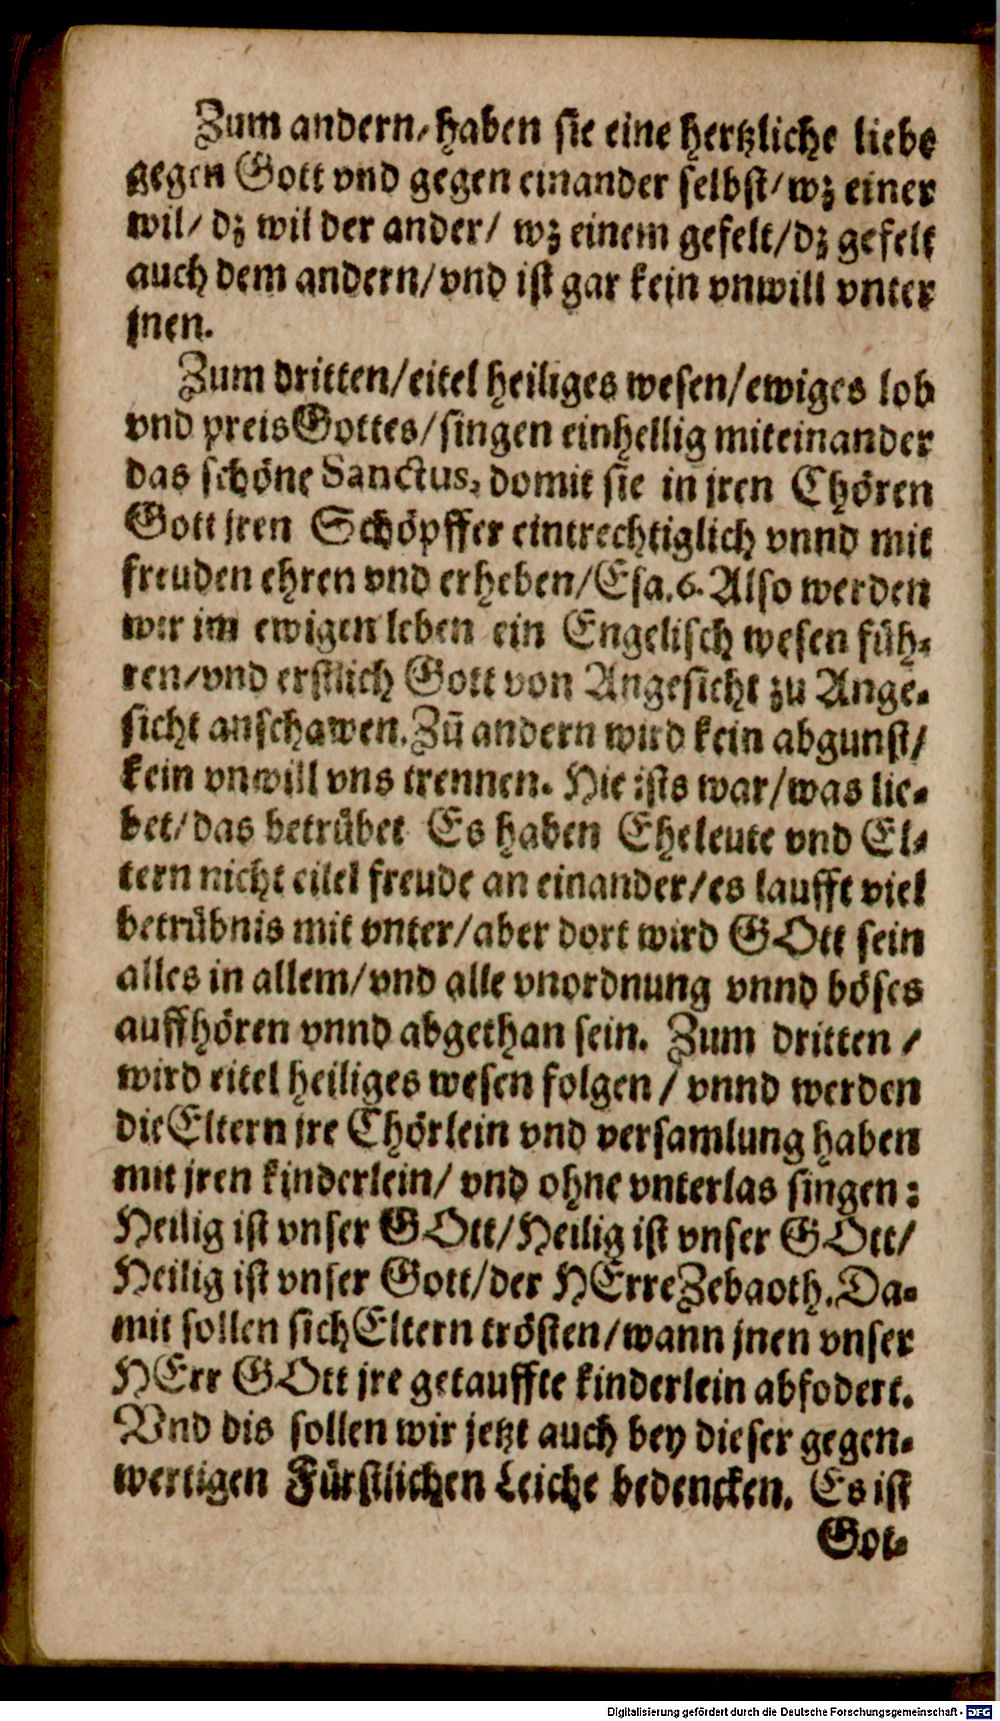 Zum andern/ haben sie eine hertzliche liebe
gegen Gott vnd gegen einander selbst/ wz einer
wil/ dz wil der ander/ wz einem gefelt/ dz gefelt
auch dem andern/ vnd ist gar kein vnwill vnter
jnen.
Zum dritten/ eitel heiliges wesen/ ewiges lob
vnd preis Gottes/ singen einhellig miteinander
das schöne Sanctus, domit sie in jren Chören
Gott jren Schöpffer eintrechtiglich vnnd mit
freuden ehren vnd erheben/ Esa. 6. Also werden
wir im ewigen leben ein Engelisch wesen füh-
ren/ vnd erstlich Gott von Angesicht zu Ange-
sicht anschawen. Zū andern wird kein abgunst/
kein vnwill vns trennen. Hie ists war/ was lie-
bet/ das betrübet Es haben Eheleute vnd El-
tern nicht eitel freude an einander/ es laufft viel
betrübnis mit vnter/ aber dort wird GOtt sein
alles in allem/ vnd alle vnordnung vnnd böses
auffhören vnnd abgethan sein. Zum dritten/
wird eitel heiliges wesen folgen/ vnnd werden
die Eltern jre Chörlein vnd versamlung haben
mit jren kinderlein/ vnd ohne vnterlas singen:
Heilig ist vnser GOtt/ Heilig ist vnser GOtt/
Heilig ist vnser Gott/ der HErre Zebaoth. Da-
mit sollen sich Eltern trösten/ wann jnen vnser
HErr GOtt jre getauffte kinderlein abfodert.
Vnd dis sollen wir jetzt auch bey dieser gegen-
wertigen Fürstlichen Leiche bedencken. Es ist
Got-
Digitalisierung gefördert durch die Deutsche Forschungsgemeinschaft - DFG